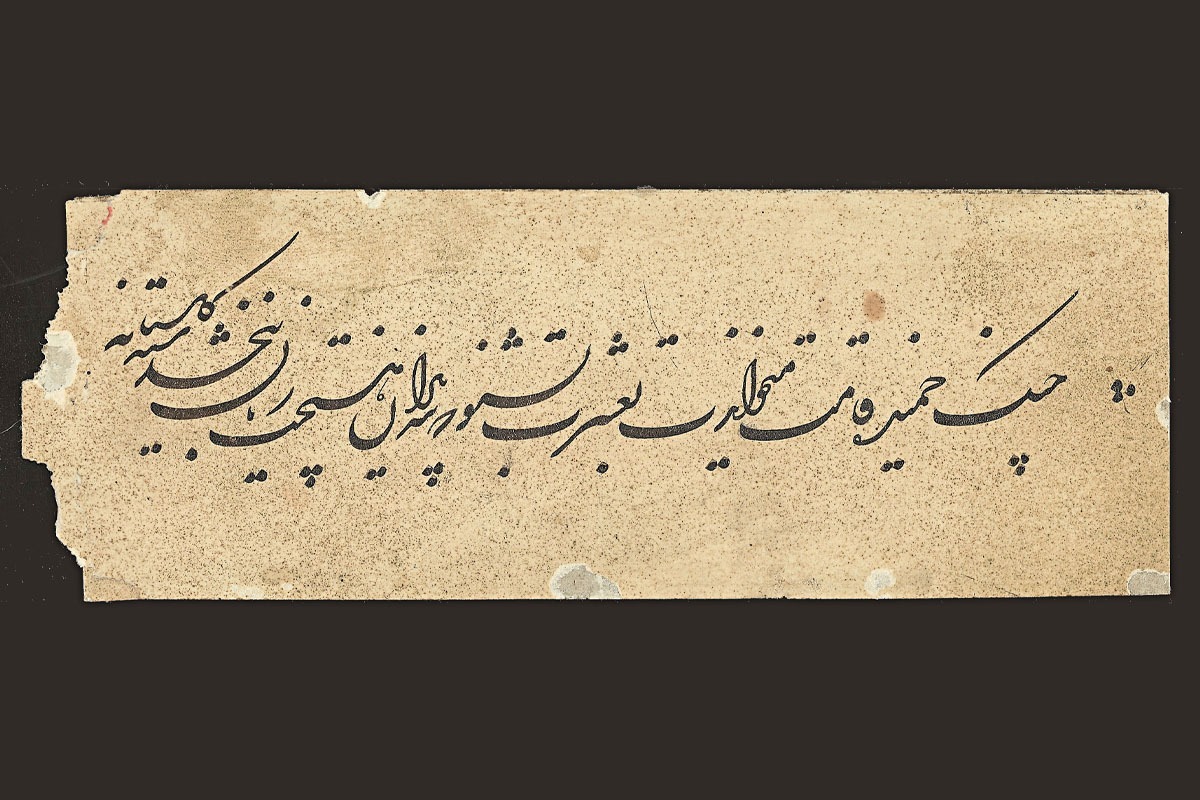 چنک خمیده قامت میخواندت بعشرت بشنو که پند پیران هیچت زیان